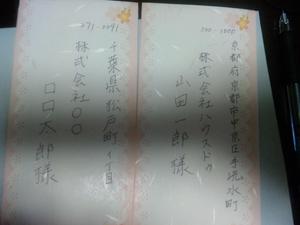 271-0091
千葉県松戸町1丁目
株式会社〇〇
口口太郎様
000-0000
京都府京都市中京区手洗水町
株式会社ハウスドゥ
山田一郎様